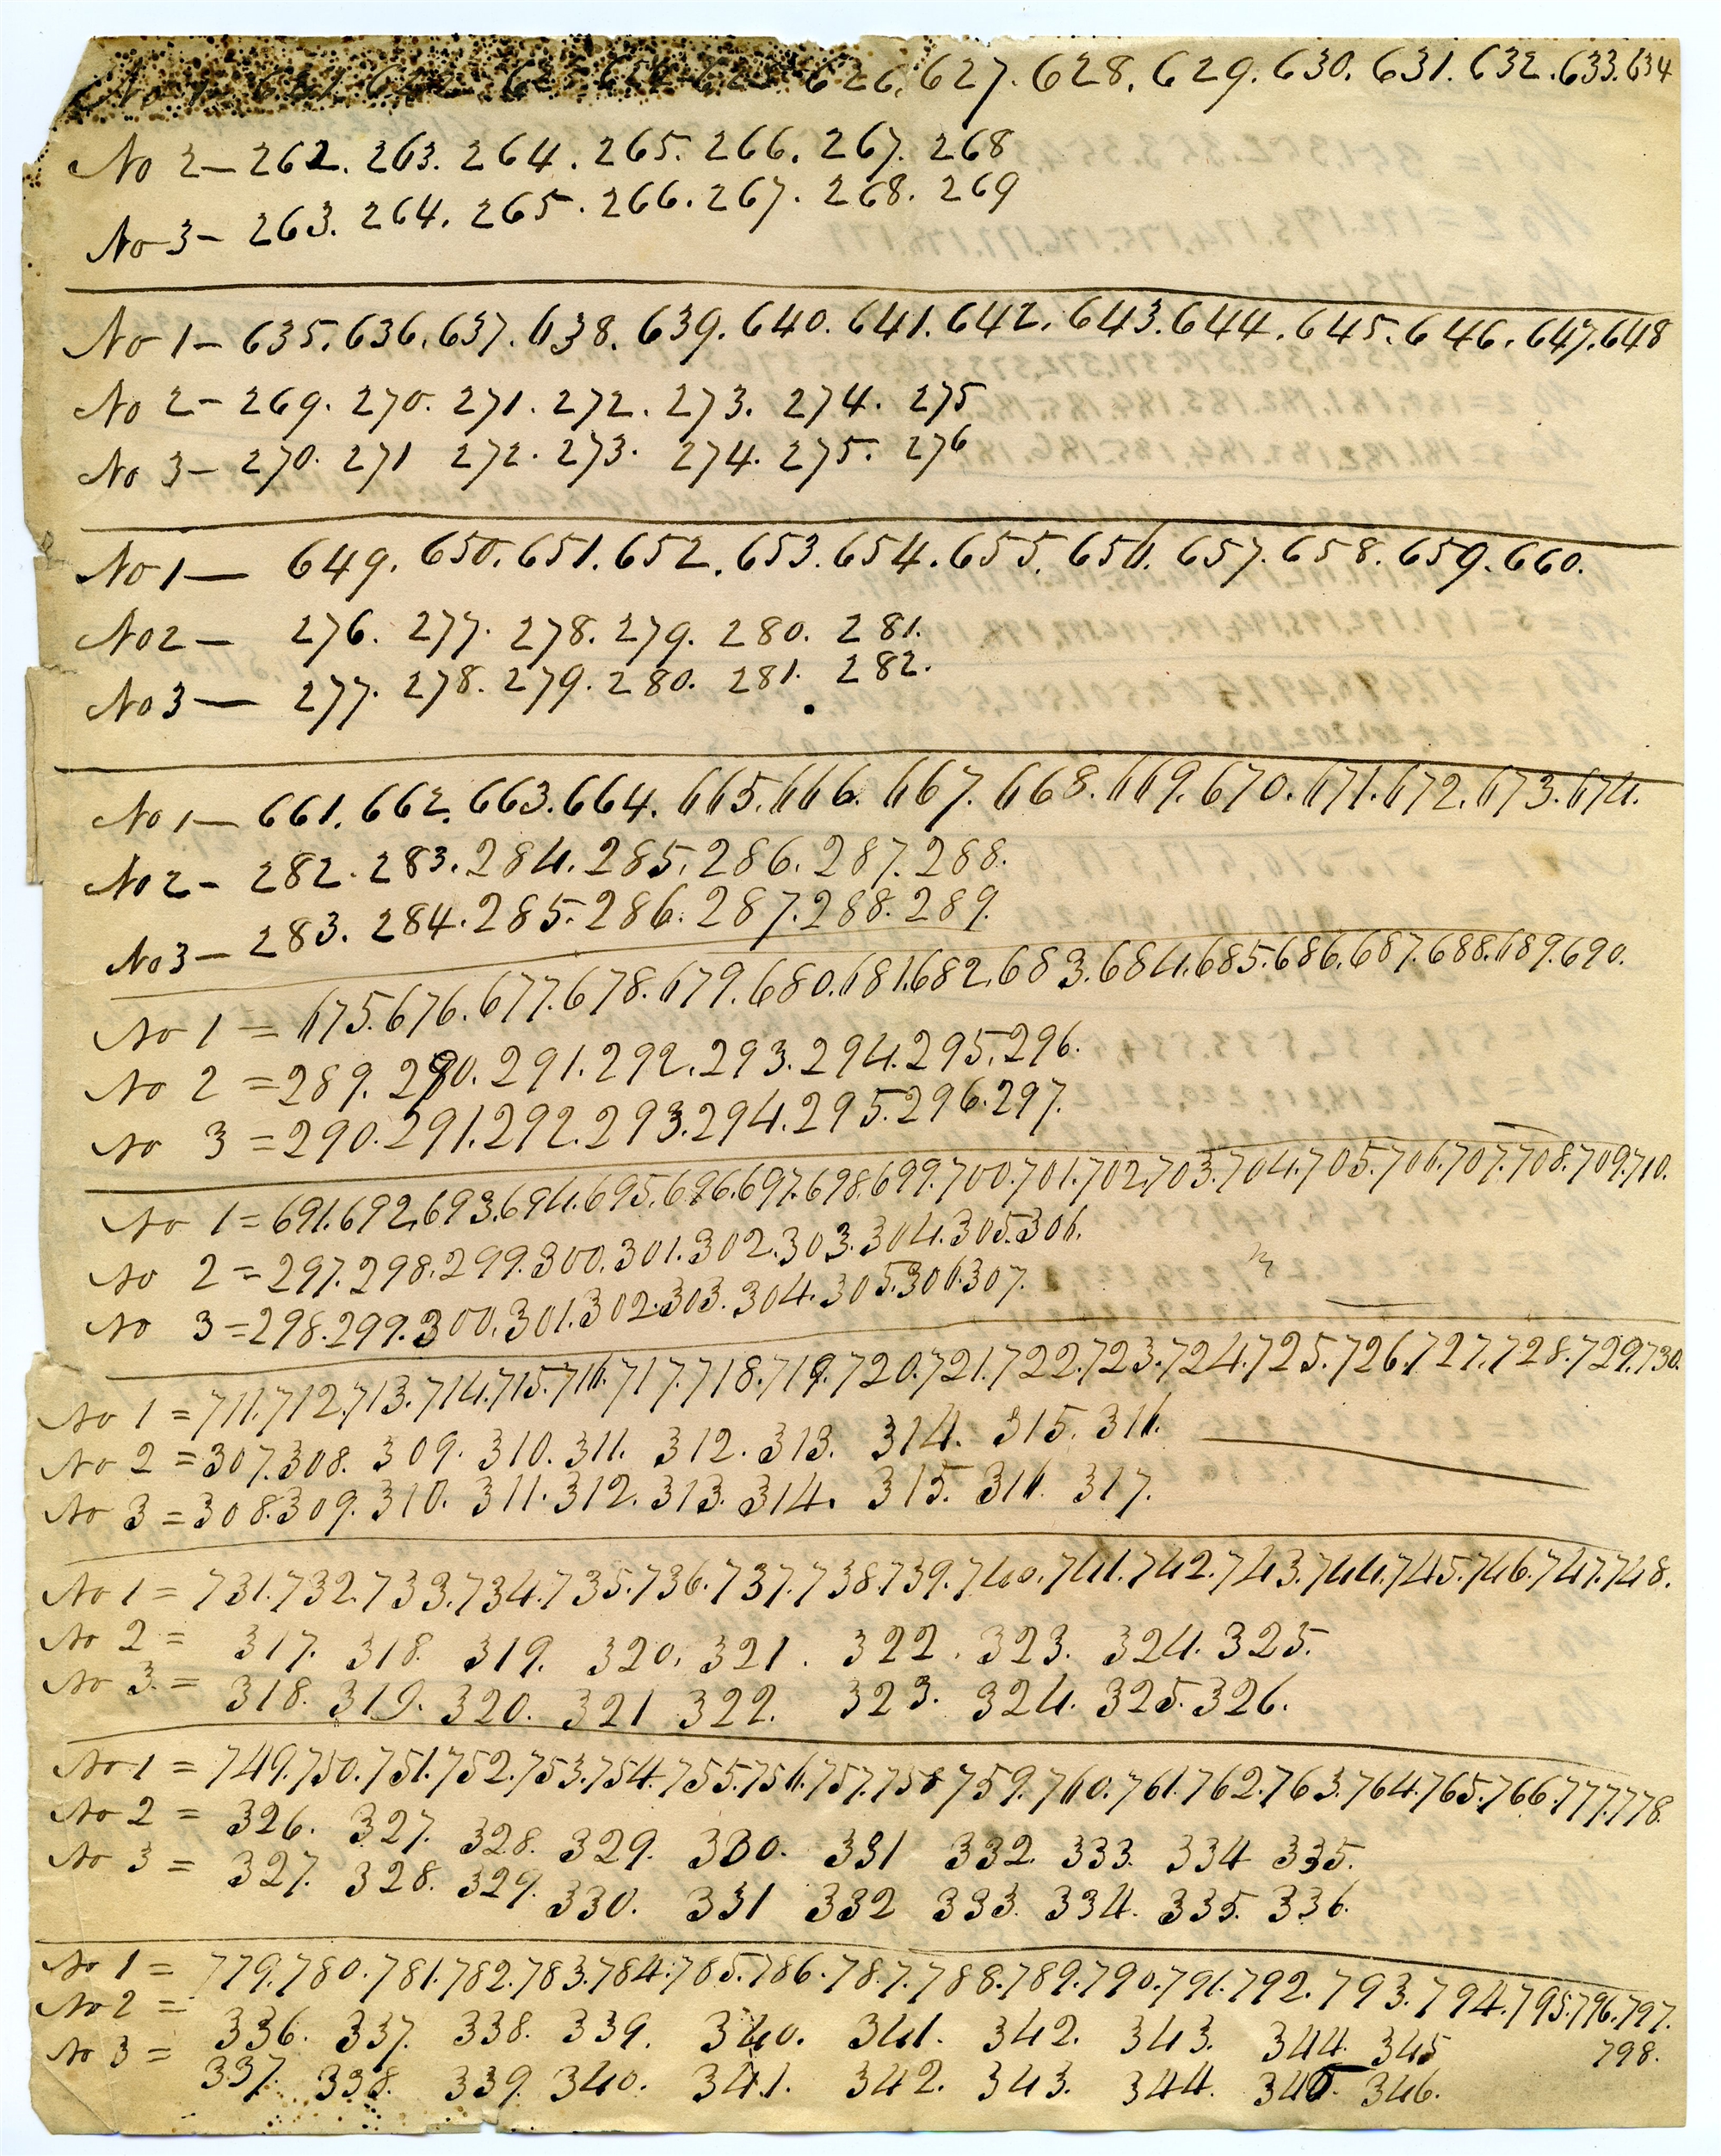 No 1- 621. 622. 623. 624. 625. 626. 627. 628. 629. 630. 631. 632. 633. 634
No 2- 262. 263. 264. 265. 266. 267. 268
No 3- 263. 264. 265. 266. 267. 268. 269
No 1- 635. 636. 637. 638. 639. 640. 641. 642. 643. 644. 645. 646. 647. 648
No 2- 269. 270. 271. 272. 273. 274. 275
No 3- 270. 271 272. 273. 274. 275. 276
No 1- 649. 650. 651. 652. 653. 654. 655. 656. 657. 658. 659. 660.
No 2- 276. 277. 278. 279. 280. 281.
No 3- 277. 278. 279. 280. 281. 282.
No 1- 661. 662. 663. 664. 665. 666. 667. 668. 669. 670. 671. 672. 673. 674.
No 2- 282. 283. 284. 285. 286. 287. 288.
No 3- 283. 284. 285. 286. 287. 288. 289.
No 1 = 675. 676. 677. 678. 679. 680. 681. 682. 683. 684. 685. 686. 687. 688. 689. 690.
No 2 = 289. 290. 291. 292. 293. 294. 295. 296.
No 3 = 290. 291. 292. 293. 294. 295. 296. 297.
No 1 = 691. 692. 693. 694. 695. 696. 697. 698. 699. 700. 701. 702. 703. 704. 705. 706. 707. 708. 709. 710.
No 2 = 297. 298. 299. 300. 301. 302. 303. 304. 305. 306.
No 3 = 298. 299. 300. 301. 302. 303. 304. 305. 306. 307.
No 1 = 711. 712. 713. 714. 715. 716. 717. 718. 719. 720. 721. 722. 723. 724. 725. 726. 727. 728. 729. 730.
No 2 = 307. 308. 309. 310. 311. 312. 313. 314. 315. 316.
No 3 = 308. 309. 310. 311. 312. 313. 314. 315. 316. 317.
No 1 = 731. 732. 733. 734. 735. 736. 737. 738. 739. 740. 741. 742. 743. 744. 745. 746. 747. 748.
No 2 = 317. 318. 319. 320. 321. 322. 323. 324. 325.
No 3. = 318. 319. 320. 321 322. 323. 324. 325. 326.
No 1 = 749. 750. 751. 752. 753. 754. 755. 756. 757. 758 759. 760. 761. 762. 763. 764. 765. 766. 777. 778.
No 2 = 326. 327. 328. 329. 330. 331 332. 333. 334 335.
No 3 = 327. 328. 329. 330. 331 332 333. 334. 335. 336.
No 1 = 779. 780. 781. 782. 783. 784. 785. 786. 787. 788. 789. 790. 791. 792. 793. 794. 795. 796. 797.
798.
No 2 = 336. 337. 338. 339. 340. 341. 342. 343. 344. 345
No 3 = 337. 338. 339. 340. 341. 342. 343. 344. 345. 346.